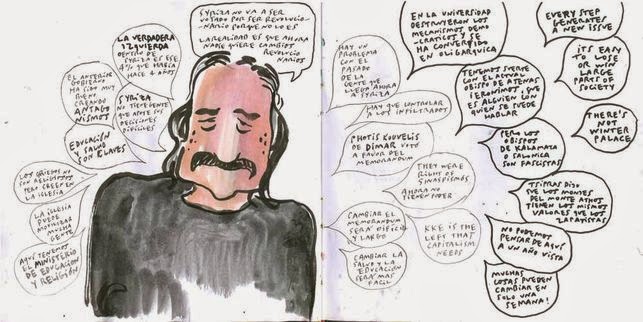 SYRIZA NO VA A SER
VOTADO POR SER REVOLUCIO-
NARIO PORQUE NO LO ES
LA REALIDAD ES QUE AHORA
NADIE QUIERE CAMBIOS
REVOLUCIO
NARIOS
LA VERDADERA
IZQUIERDA
DENTRO DE
SYRIZA ES ESE
4% QUE HABIA
HACE 4 AÑOS
EL ANTERIOR
GOBIERNO
HA SIDO MUY
BUENO
CREANDO
ANTAGO
NISMOS
SYRIZA
NO TIENE GENTE
QUE APOYE SUS
DECISIONES
DIFICILES
EDUCACIÓN
Y SALUD
SON CLAVES
LOS GRIEGOS NO
SON RELIGIOSOS
PERO CREEN EN
LA IGLESIA
LA IGLESIA
PUEDE
MOVILIZAR
MUCHA
GENTE
AQUI TENEMOS
EL MINISTERIO
DE EDUCACION
Y RELIGIÓN
HAY UN
PROBLEMA
CON EL
PASADO
DE LA
GENTE QUE
LLEGÓ AHORA
A SYRIZA
HAY QUE CONTROLAR
A LOS INFILTRADOS
PHOTIS KOUVELIS
DE DIMAR VOTÓ
A FAVOR DEL
MEMORANDUM
THEY WERE
RIGHT OF
SINASPISMOS
AHORA NO
TIENEN PODER
CAMBIAR EL
MEMORANDUM
SERÁ DIFICIL
Y LARGO
KKE IS THE
LEFT THAT
CAPITALISM
NEEDS
CAMBIAR LA
SALUD Y LA
EDUCACIÓN
SERÁ MAS
FACIL
EN LA UNIVERSIDAD
DESTRUYERON LOS
MECANISMOS DEMO-
CRATICOS Y SE
HA CONVERTIDO
EN OLIGARQUICA
TENEMOS SUERTE
CON EL ACTUAL
OBISPO DE ATENAS
IERONIMOS, QUE
ES ALGUIEN CON
QUIEN SE PUEDE
HABLAR
PERO LOS
OBISPOS
DE KALAMATA
O SALONICA
SON FASCISTAS
TSIPRAS DIJO
QUE LOS MONJES
DEL MONTE ATHOS
TIENEN LOS MISMOS
VALORES QUE LOS
ZAPATISTAS
NO PODEMOS
PENSAR DE AQUÍ
A UN AÑO VISTA
MUCHAS
COSAS PUEDEN
CAMBIAR EN
SOLO UNA
SEMANA!
EVERY STEP
GENERATES
A NEW ISSUE
IT'S EASY
TO LOSE
OR WIN
LARGE
PARTS OF
SOCIETY
THERE'S
NOT
WINTER
PALACE